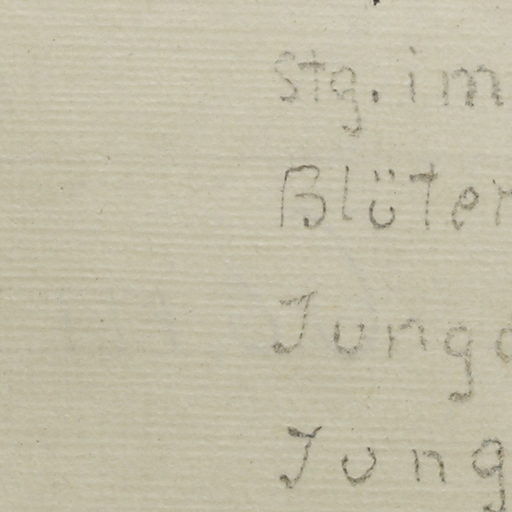 Stg. im
Blüten
Jung
Jung